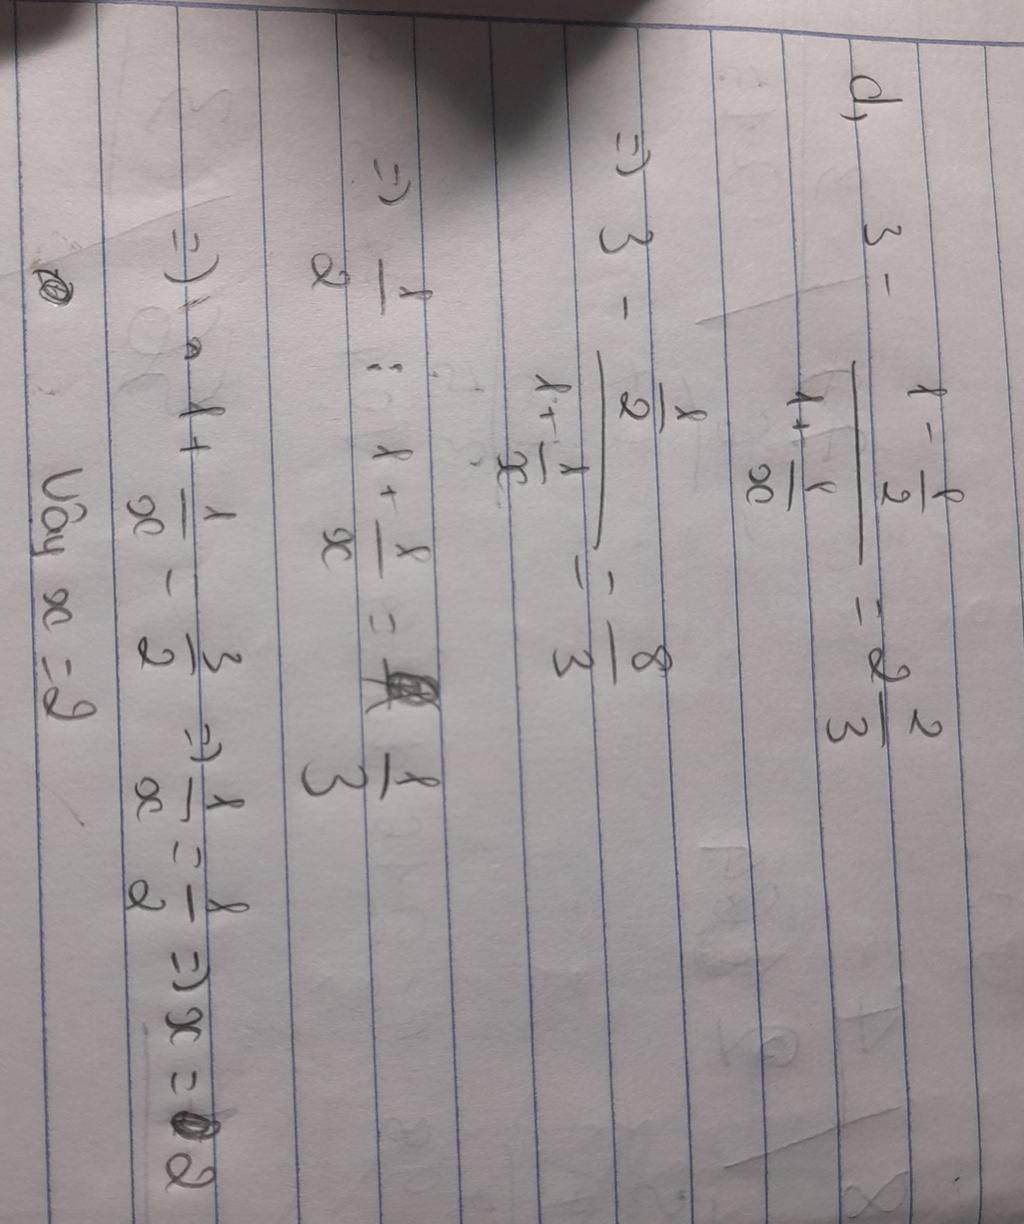 d, 3 - (1 - 1/2)/(1 + 1/x) = 2 2/3
=) 3 - (1/2)/(1 + 1/x) = 8/3
=) 1/2 : 1 + 1/x = 1/3
=) 1 + 1/x = 3/2 =) 1/x = 1/2 =) x = 2
Vây x = 2